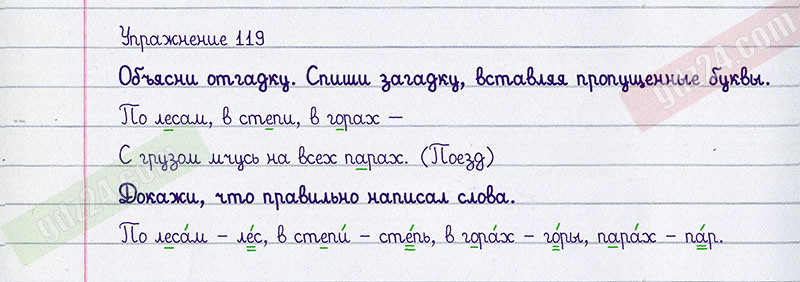 Упражнение 119
Объясни отгадку. Спиши загадку, вставляя пропущенные буквы.
По лесам, в степи, в горах –
С грузом мчусь на всех парах. (Поезд)
Докажи, что правильно написал слова.
По леса́м – ле́с, в степи́ – сте́пь, в гора́х – го́ры, пара́х – па́р.
ydz24.com
ydz24.com